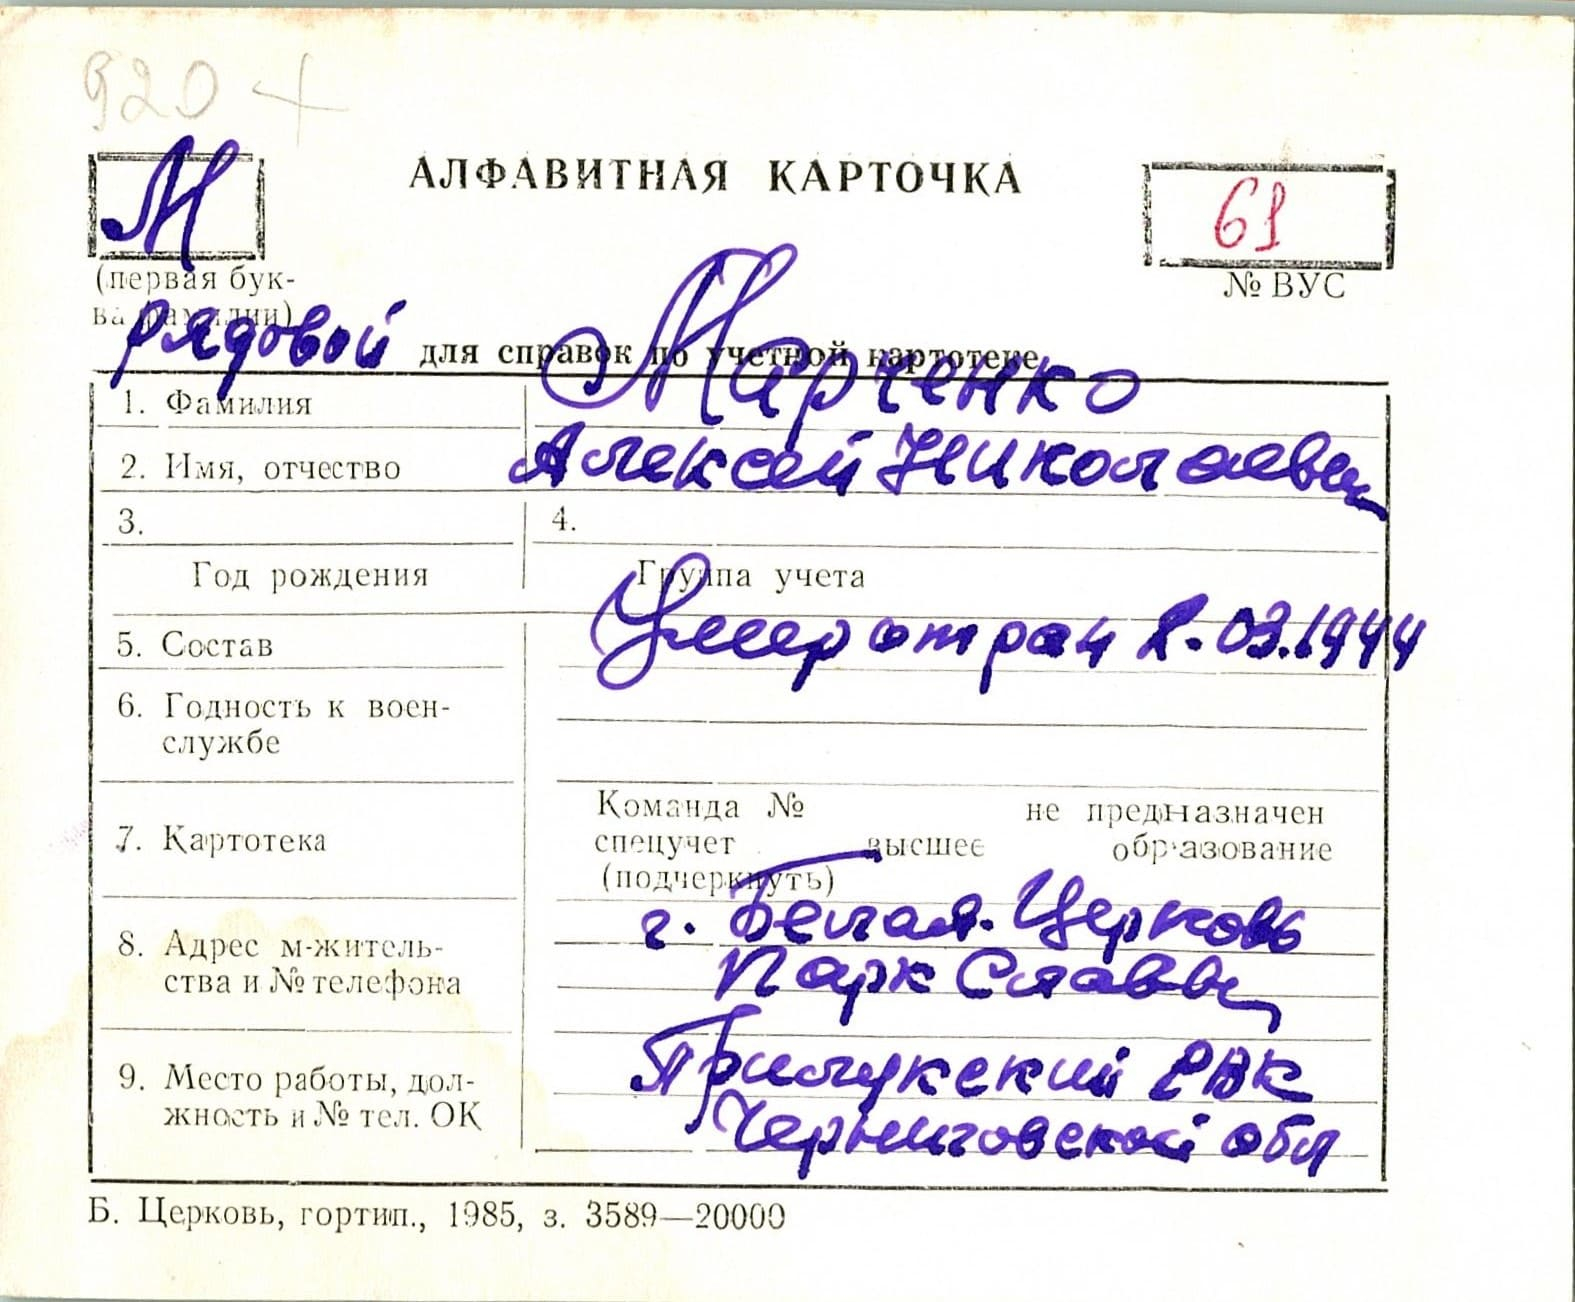 920 +
М
АЛФАВИТНАЯ КАРТОЧКА
61
(первая бук-
ва фамилии)
№ ВУС
рядовой
для справок по учетной картотеке
1. Фамилия
Марченко
2. Имя, отчество
Алексей Николаевич
3.
4.
Год рождения
Группа учета
5. Состав
Умер от ран 2.03.1944
6. Годность к воен-
службе
7. Картотека
Команда № не предназначен
спецучет высшее образование
(подчеркнуть)
8. Адрес м-житель-
ства и № телефона
г. Белая Церковь
Парк Славы
9. Место работы, дол-
жность и № тел. ОК
Прилукский РВК
Черниговской обл
Б. Церковь, гортип., 1985, з. 3589—20000